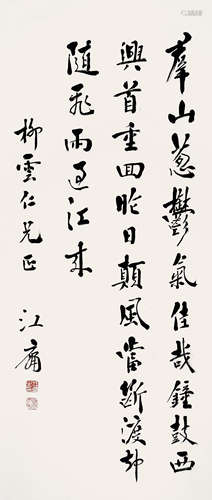 羣山蔥鬱氣佳哉鐘鼓西
興首重回昨日顛風當斷渡却
隨飛雨過江來
柳雲仁兄正
江庸